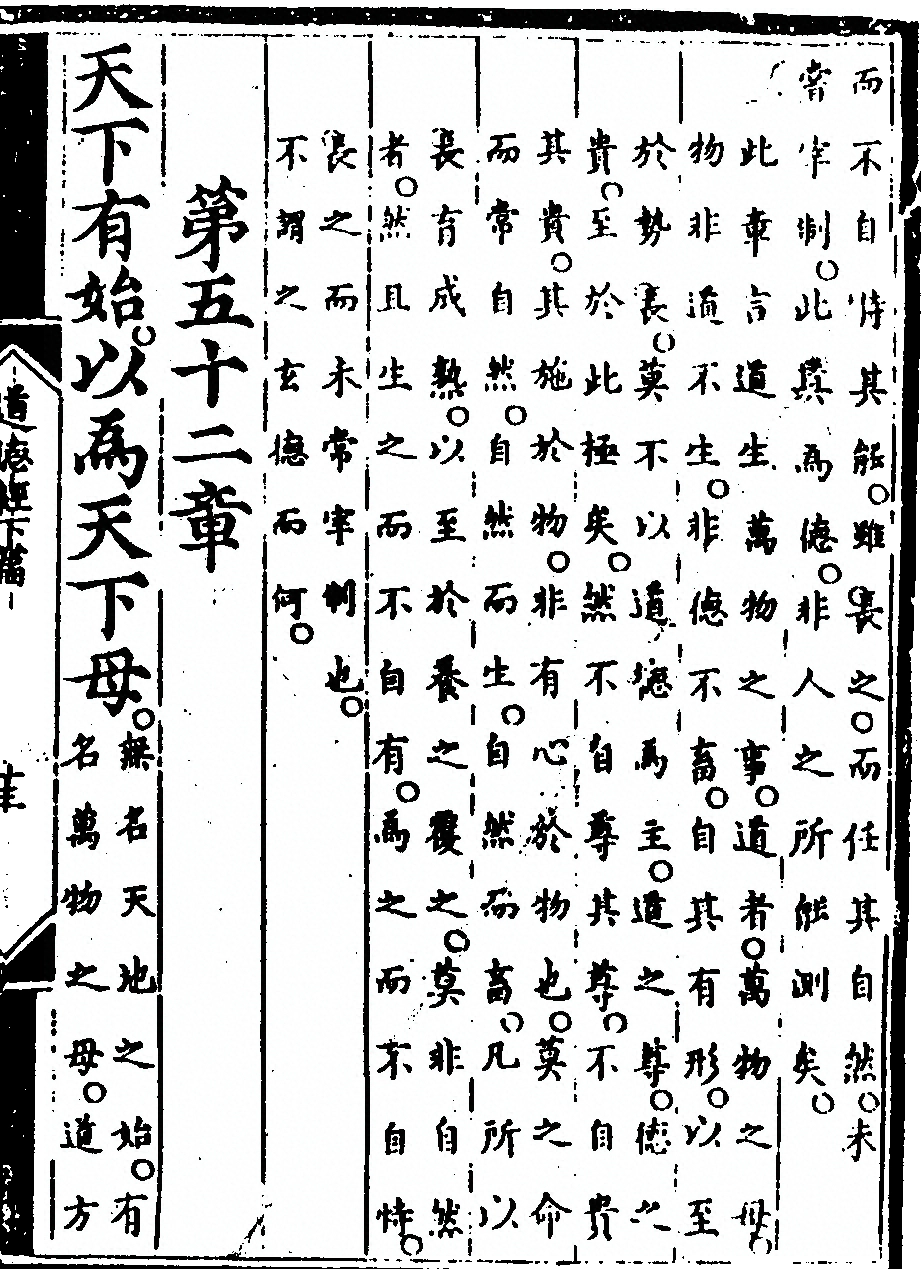 而不自恃其能。雖長之。而任其自然。未
嘗宰制。此眞為德。非人之所能測矣。
此章言道生萬物之事。道者。萬物之母。
物非道不生。非德不畜。自其有形。以至
於勢長。莫不以道德為主。道之尊。德之
貴。至於此極矣。然不自尊其尊。不自貴
其貴。其施於物。非有心於物也。莫之命
而常自然。自然而生。自然而畜。凡所以
長育成熟。以至於養之覆之。莫非自然
者。然且生之而不自有。為之而不自恃。
長之而未常宰制也。
不謂之玄德而何。
第五十二章
天下有始。以為天下母。無名天地之始。有
名萬物之母。道方
道德經下篇